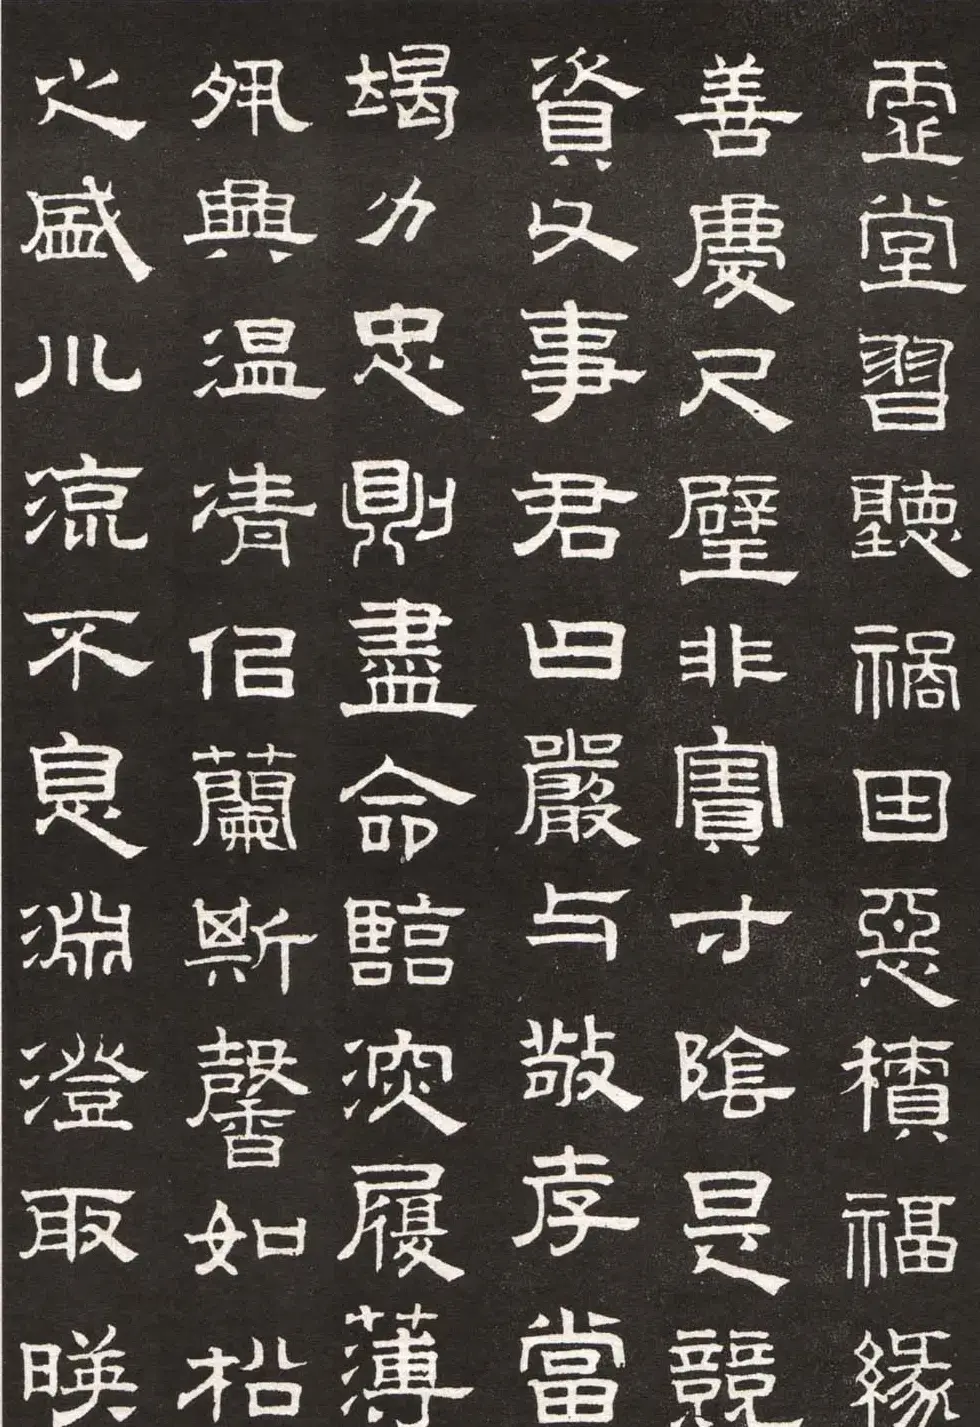 虛堂習聽禍因惡積福緣
善慶尺璧非寶寸陰是競
資父事君曰嚴与敬孝當
竭力忠則盡命臨深履薄
夙興温凊似蘭斯馨如松
之盛川流不息淵澄取暎